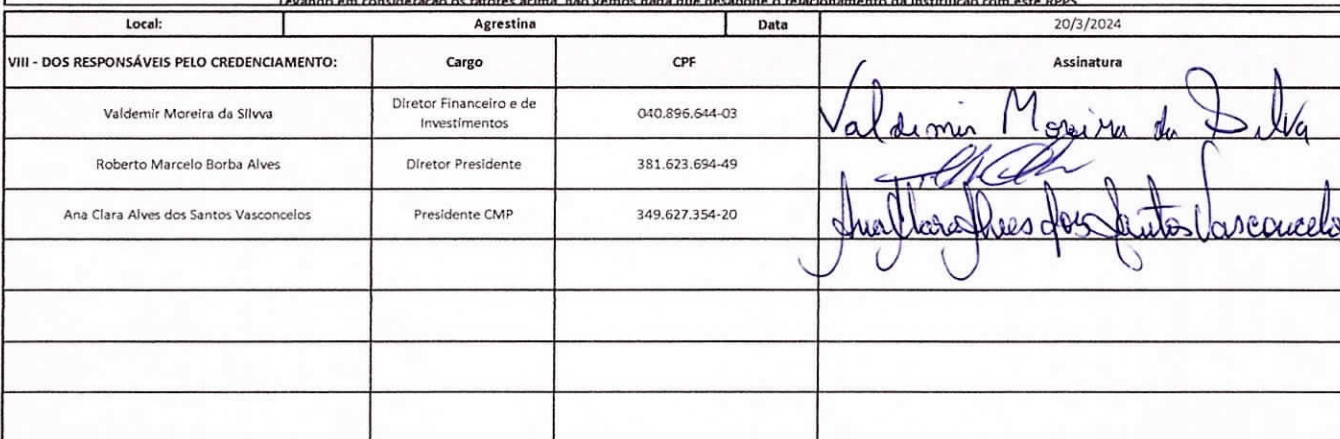 Levando em consideração os fatores acima, não vemos nada que desabone o relacionamento da instituição com este RPPS
Local: Agrestina Data 20/3/2024
VIII - DOS RESPONSÁVEIS PELO CREDENCIAMENTO: Cargo CPF Assinatura
Valdemir Moreira da Silvva Diretor Financeiro e de Investimentos 040.896.644-03 Valdemir Moreira da Silva
Roberto Marcelo Borba Alves Diretor Presidente 381.623.694-49
Ana Clara Alves dos Santos Vasconcelos Presidente CMP 349.627.354-20 Ana Clara Alves dos Santos Vasconcelo